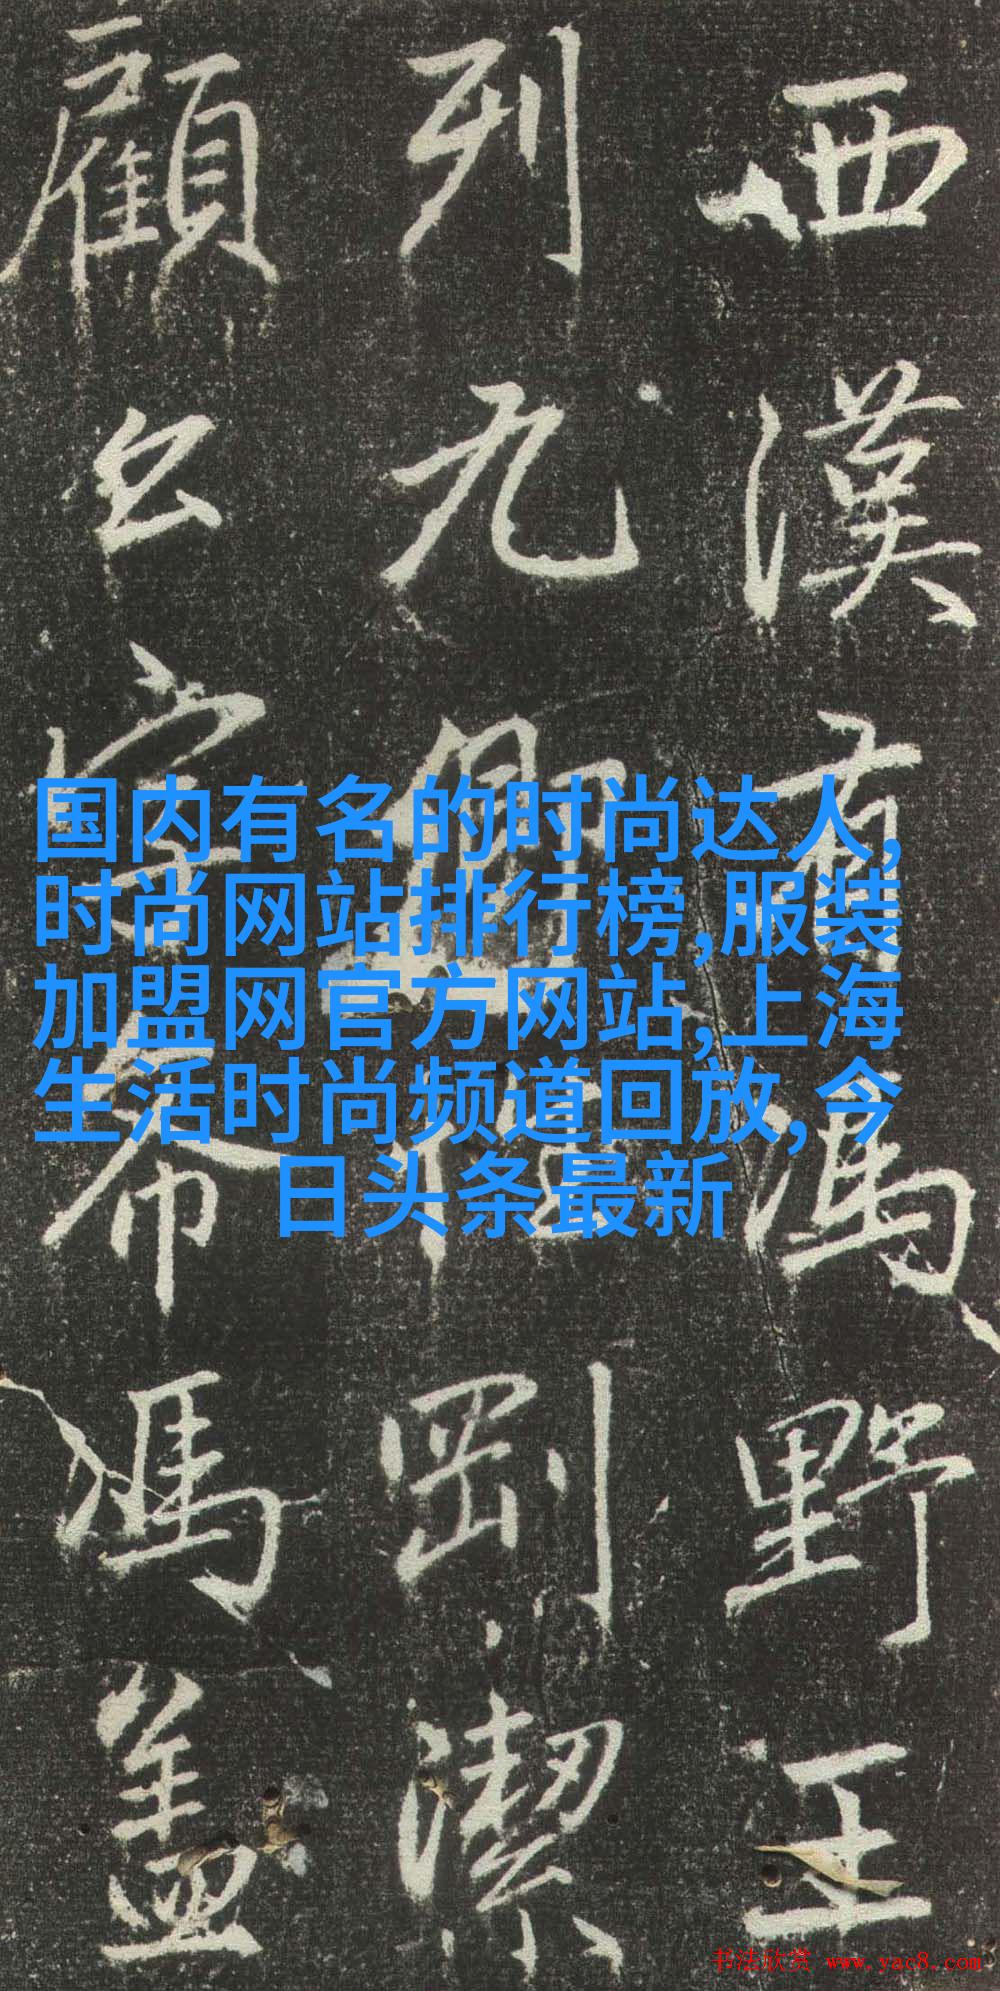 西漢有馮野王
列九卿性剛潔
顧公希馮盖
国内有名的时尚达人,
时尚网站排行榜,服装
加盟网官方网站,上海
生活时尚频道回放,今
日头条最新
书法欣赏 www.yac8.com